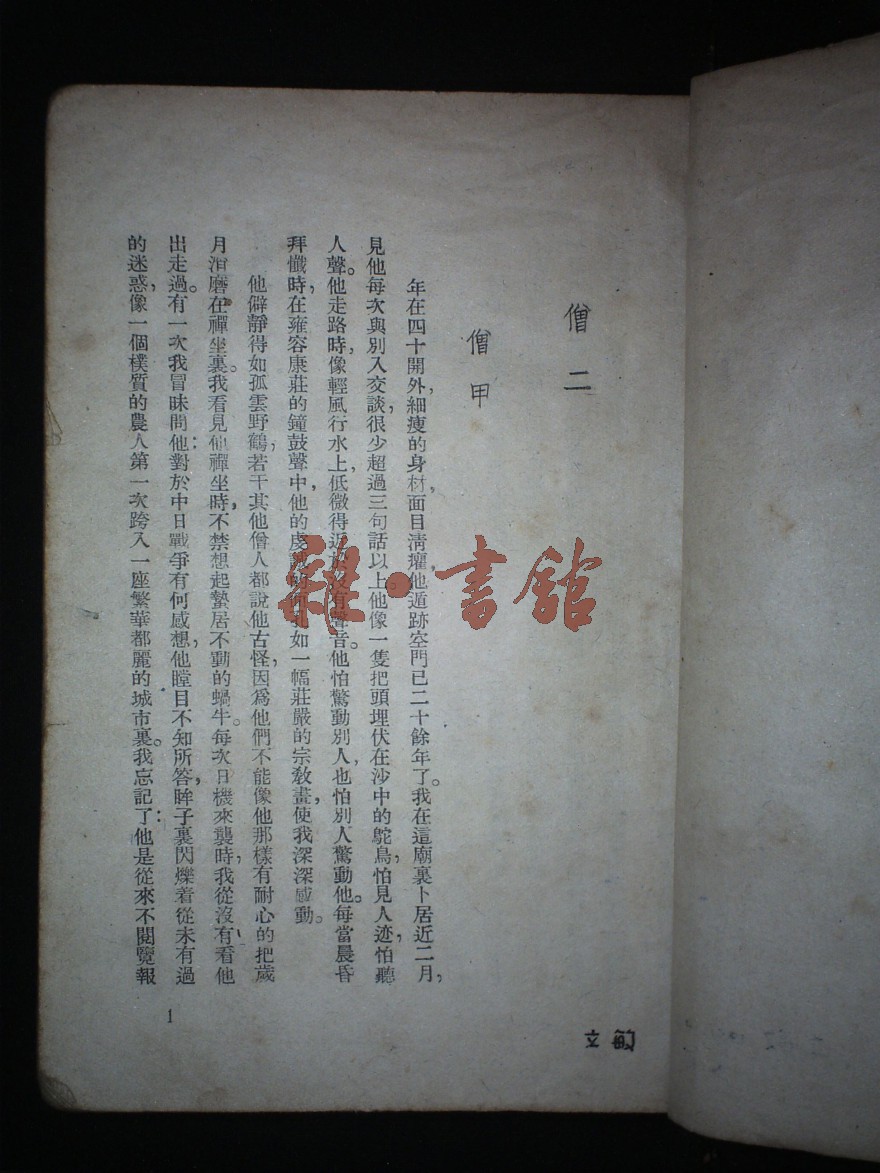 僧二
僧甲
年在四十開外，細瘦的身材，面目清癯，他遁跡空門已二十餘年了。我在這廟裏卜居近二月，
見他每次與別人交談，很少超過三句話以上。他像一隻把頭埋伏在沙中的鴕鳥，怕見人迹，怕聽
人聲。他走路時，像輕風行水上，低微得近於沒有聲音。他怕驚動別人，也怕別人驚動他。每當晨昏
拜懺時，在雍容康莊的鐘鼓聲中，他的虔 如一幅莊嚴的宗教畫，使我深深感動。
他僻靜得如孤雲野鶴，若干其他僧人都說他古怪，因爲他們不能像他那樣有耐心的把歲
月消磨在禪坐裏。我看見他禪坐時，不禁想起蟄居不動的蝸牛。每次日機來襲時，我從沒有看他
出走過。有一次我冒昧問他：對於中日戰爭有何感想，他瞠目不知所答，眸子裏閃爍着從未有過
的迷惑，像一個樸質的農人第一次跨入一座繁華都麗的城市裏。我忘記了：他是從來不閱覽報
1
雜·書館